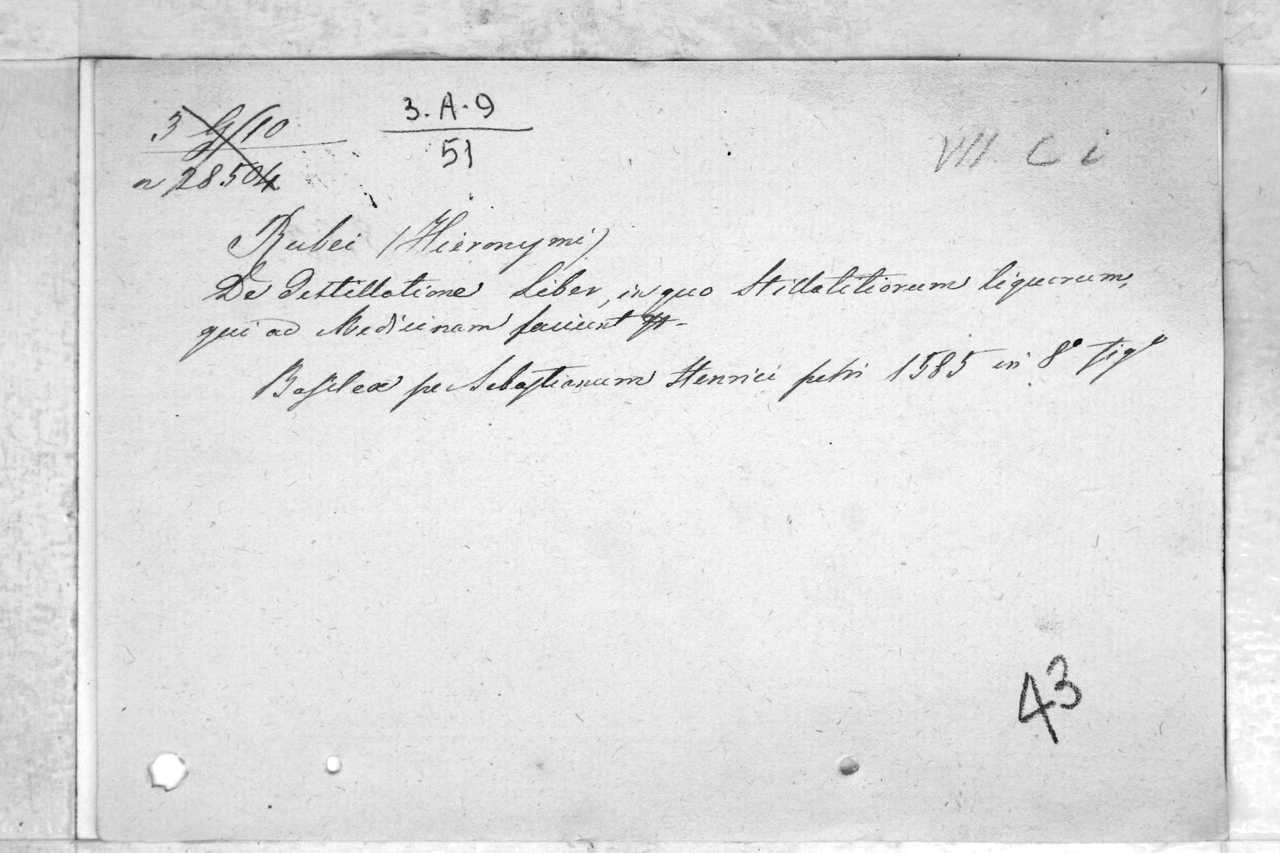 3 G/10
n 28504
3. A. 9
51
VII C i
Rubei (Hieronymi)
De Destillatione Liber, in quo Stillatitiorum liquorum,
qui ad Medicinam faciunt
Basileæ pe Sebastianum Henrici petri 1585 in 8° fig.e
43